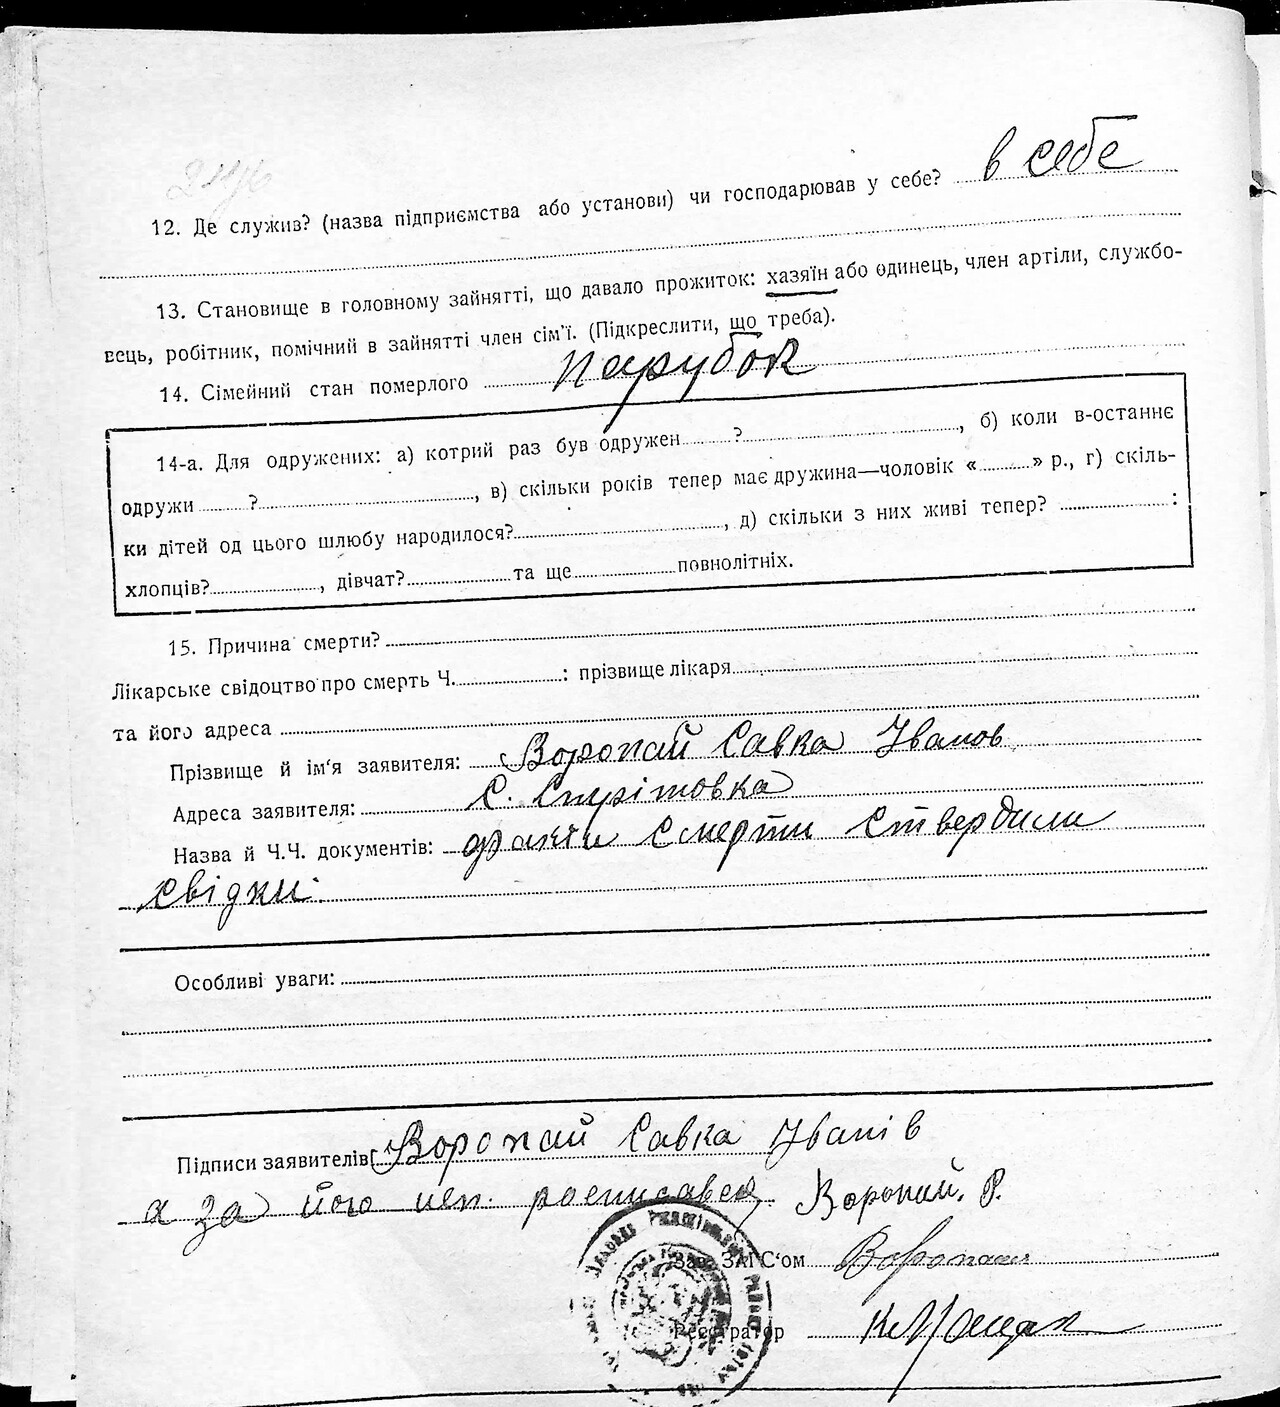 12. Де служив? (назва підприємства або установи) чи господарював у себе? в себе
13. Становище в головному зайнятті, що давало прожиток: хазяїн або одинець, член артіли, службо-
вець, робітник, помічний в зайнятті член сім'ї. (Підкреслити, що треба).
14. Сімейний стан померлого парубок
14-а. Для одружених: а) котрий раз був одружен ?, б) коли в-останнє
одружи ?, в) скільки років тепер має дружина—чоловік « » р., г) скіль-
ки дітей од цього шлюбу народилося?, д) скільки з них живі тепер? :
хлопців?, дівчат? та ще повнолітніх.
15. Причина смерти?
Лікарське свідоцтво про смерть Ч. : прізвище лікаря
та його адреса
Прізвище й ім'я заявителя: Воропай Савка Іванов
Адреса заявителя: С.
Назва й Ч.Ч. документів: факти смерти ствердили
свідки.
Особливі уваги:
Підписи заявителів: Воропай Савка Іванів
а за його неп. росписавсь Воропай. Р.
Зав. ЗАГС'ом
Реєстратор